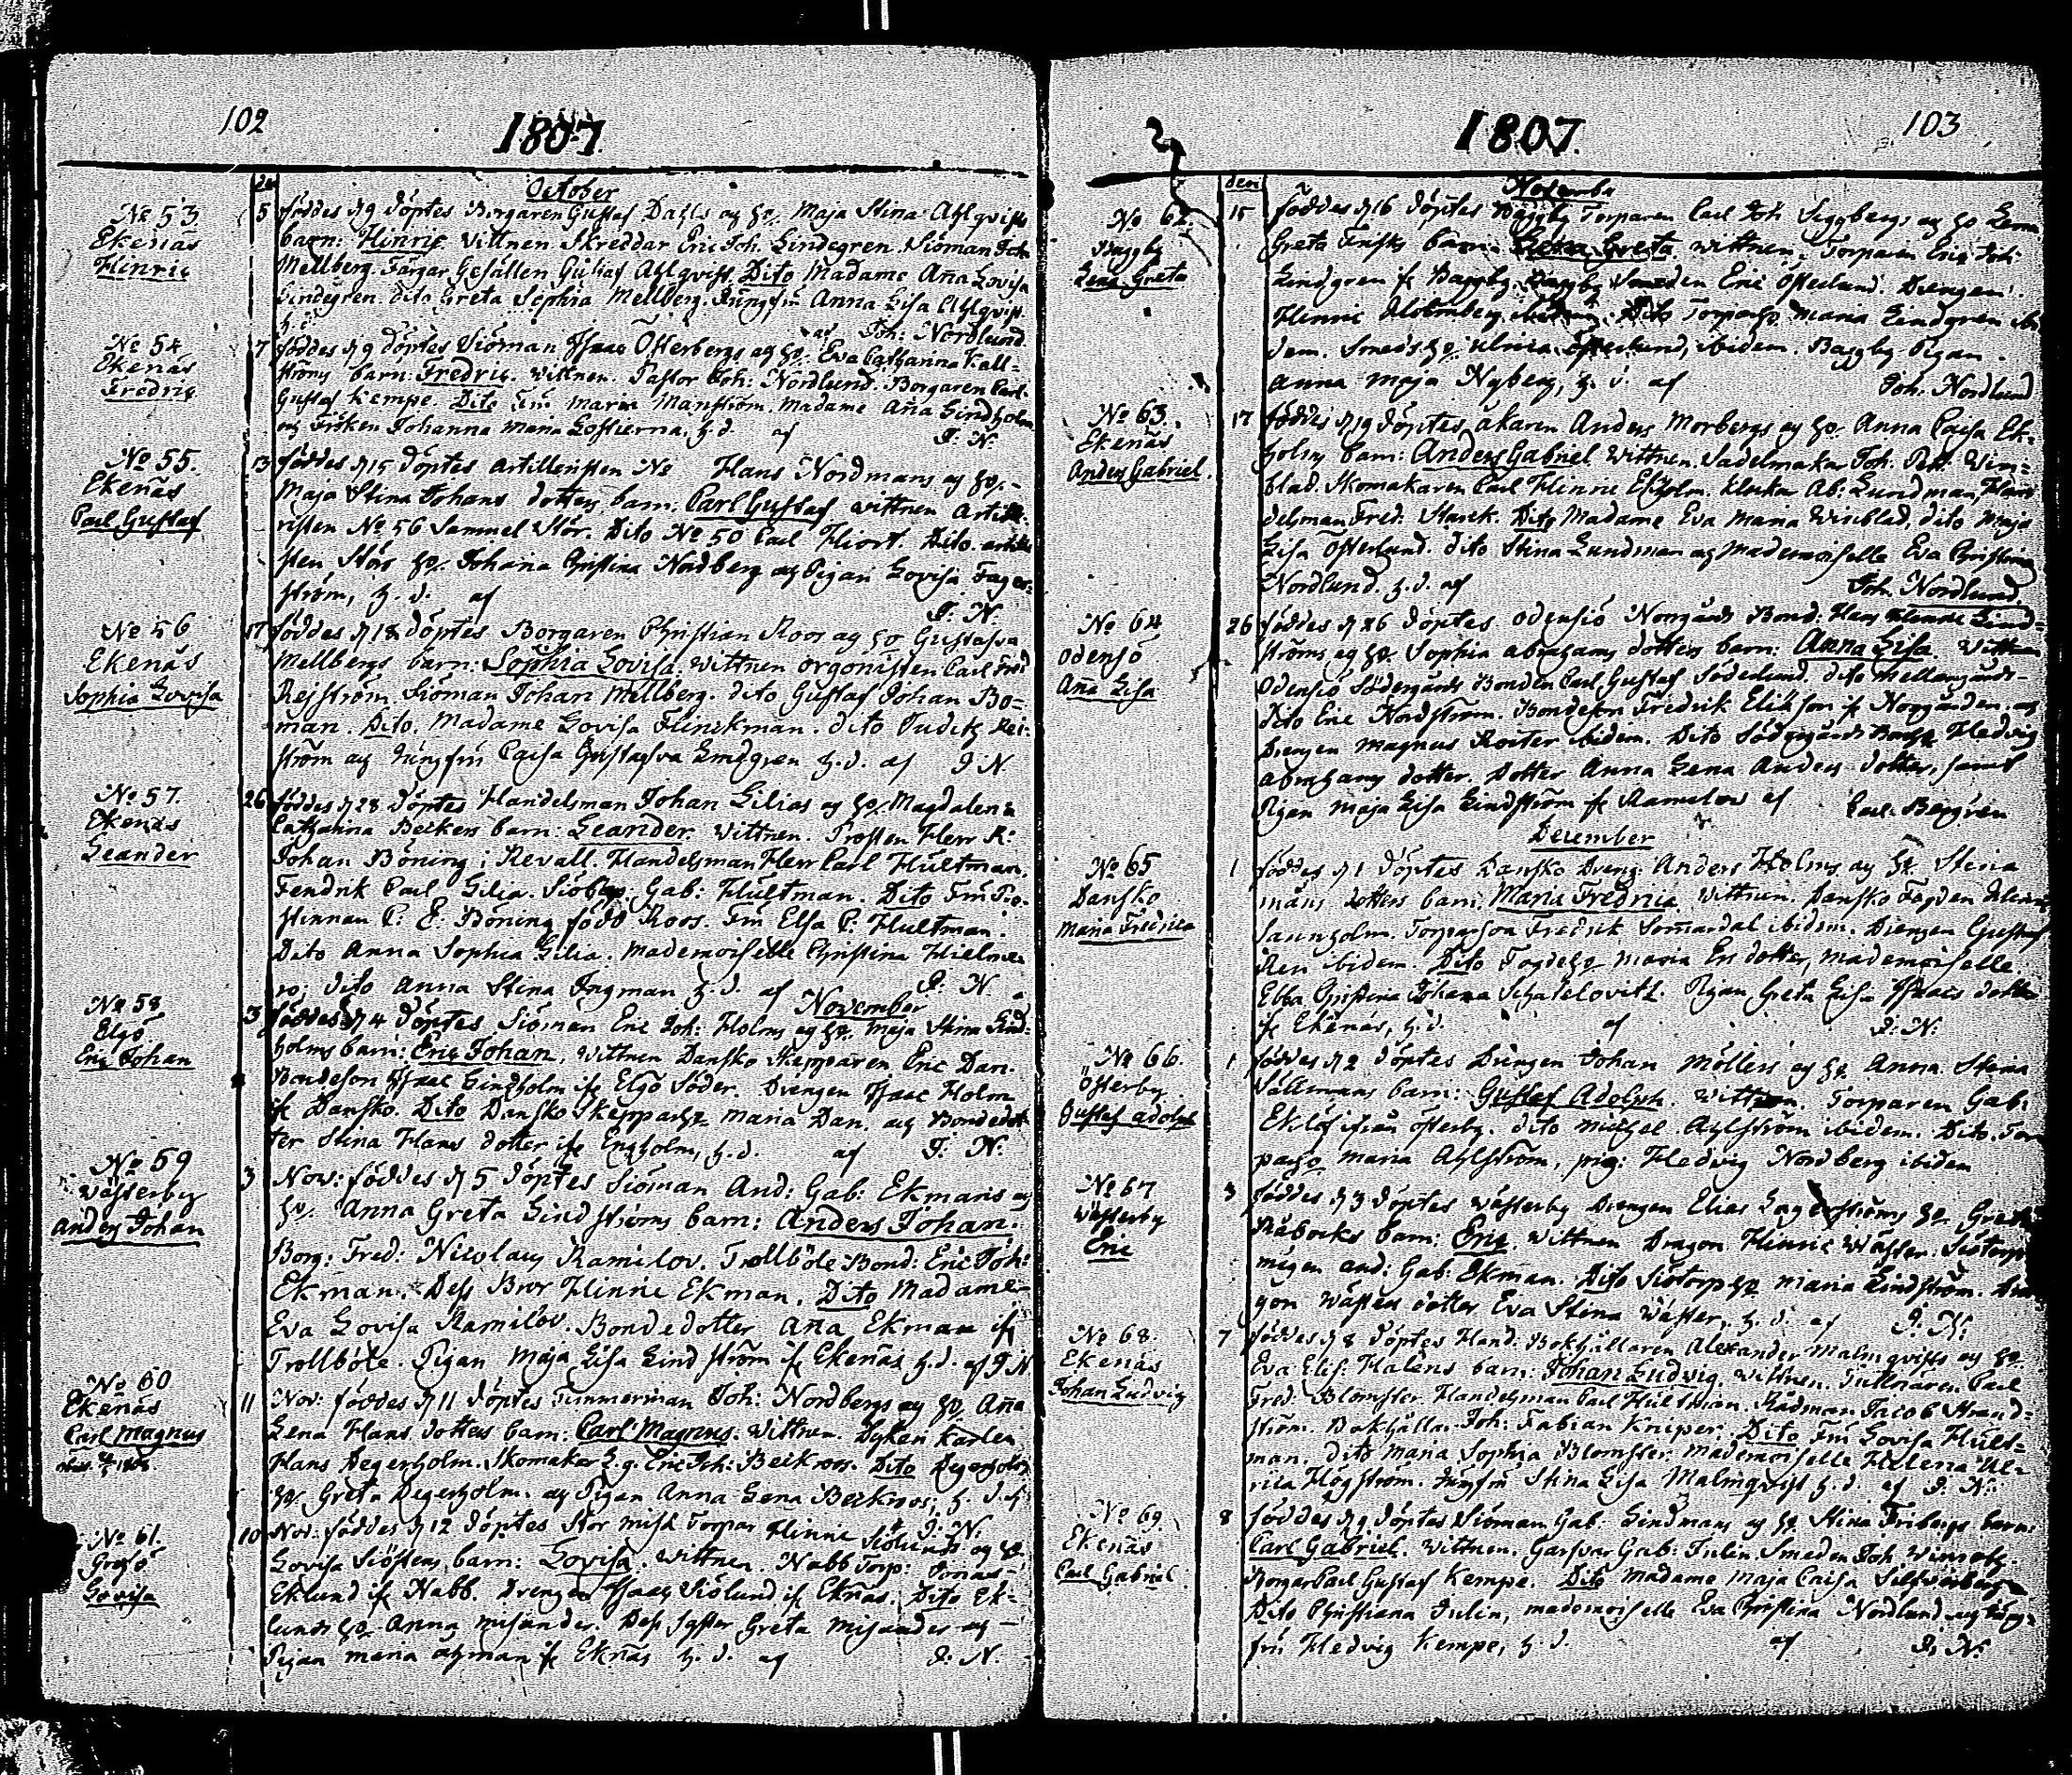 102
1807.
October
No 53.
Ekenäs
Hinric
5 föddes d 9 döptes Borgaren Gustaf Dahls og ho. Maja Stina Ahlqvists
barn: Hinric. Wittnen Skreddar Eric Joh. Lindegren. Siöman Joh.
Mellberg. Färgar Gesällen Gustaf Ahlqvist. Dito Madame Aña Lovisa
Lindegren. dito Greta Sophia Mellberg. Jungfru Anna Lisa Ahlqvist.
h. d. af Joh: Nordlund.
No 54
Ekenäs
Fredric
7 föddes d 9 döptes Siöman Isaac Österbergs og ho. Eva Catharina Kall=
ströms barn: Fredric. Wittnen. Pastor Joh: Nordlund. Borgaren Carl
Gustaf Kempe. Dito Fru Maria Manström. Madame Aña Lindholm
og Fröken Johanna Maria h. d. af J. N.
No 55.
Ekenäs
Carl Gustaf
13 föddes d 15 döptes Artilleristen No Hans Nordmans og ho.
Maja Stina Johans dotters barn: Carl Gustaf Wittnen Artille=
risten No 56 Samuel Stör. Dito No 50 Carl Hiort. Dito. artille
sten Störs ho. Johana Christina Nordberg og Pigan Lovisa Fager=
ström, h. d. af J. N.
No 56
Ekenäs
Sophia Lovisa
17 föddes d 18 döptes Borgaren Christian Roos og ho Gustafva
Mellbergs barn: Sophia Lovisa. Wittnen orgonisten Carl Fred
Reiström. Siöman Johan Mellberg. dito Gustaf Johan Bo=
man. Dito. Madame Lovisa Flinckman. dito Judith Rei=
ström og Jungfru Cajsa Gustafva Lindgren h. d. af J N.
No 57.
Ekenäs
Leander
26 föddes d 28 döptes Handelsman Johan Lilias og ho. Magdalena
Catharina Beckers barn: Leander. Wittnen. Prosten Herr R:
Johan Böning i Revall. Handelsman Herr Carl Hultman.
Fendrik Carl Lilia. Gab: Hultman. Dito Fru Pro=
stinnan C: E. Böning född Roos. Fru Elsa C. Hultman.
Dito Anna Sophia Lilia. Mademoiselle Christina Hielme=
ro; dito Anna Stina Ingman h. d. af J. N.
November
No 58
Elgö
Eric Johan
3 föddes d 4 döptes Siöman Eric Joh: Holms og ho. Maja Stina Lind=
holms barn: Eric Johan, Wittnen Dansko Skepparen Eric Dan.
Bondeson Isaac Lindholm ifr Elgö Söder. Drengen Isaac Holm
ifr Dansko. Dito Dansko Skepparho Maria Dan. og Bondedot
ter Stina Hans dotter ifr Engholm, h. d. af J. N.
No 59
Wästerby
Anders Johan
3 Nov: föddes d 5 döptes Siöman And: Gab: Ekmans og
ho. Anna Greta Lindströms barn: Anders Johan.
Borg: Fred: Nicolaus Ramilov. Trollböle Bond: Eric Joh:
Ekman. Dess Bror Hinric Ekman. Dito Madame
Eva Lovisa Ramilov. Bondedotter Aña Ekman ifr
Trollböle. Pigan Maja Lisa Lindström ifr Ekenäs h. d. af J N
No 60
Ekenäs
Carl Magnus
11 Nov: föddes d 11 döptes Timmerman Joh: Nordbergs og ho. Aña
Lena Hans dotters barn: Carl Magnus. Wittnen. Dykeri Karlen
Hans Degerholm. Skomakar Eric Joh: Beckroos. Dito Degerholms
ho. Greta Degerholm. og Pigan Anna Lena Beckroos. h. d. af J. N.
No 61.
Lovisa
10 Nov. föddes d 12 döptes Torpar Hinric Siölunds og ho.
Lovisa Siöstens barn: Lovisa. Wittnen. Nabb Torp: Jonas
Eklund ifr Nabb. Drengen Isaac Siölund ifr Eknäs. Dito Ek=
lunds ho Anna Misander. Dess Syster Greta Misander og
Pigan Maria ahman ifr Eknäs h. d. af J. N.
1807.
103
den
November
No 62.
Baggby
Lena Greta
15 föddes d 16 döptes Baggby Torparen Carl Joh Siggbergs og ho Lena
Greta Frisks barn: Lena Greta. Wittnen. Torparen Eric Joh:
Lindgren fr Baggby. Baggby Smeden Eric Österlund. Drengen
Hinric Holmberg. Dito Torparho Maria Lindgren ibi
dem. Smedsho. Ulrica Österlund, ibidem. Baggby Pigan
Anna Maja Nyberg, h. d. af Joh: Nordlund
No 63.
Ekenäs
Anders Gabriel.
17 föddes d 19 döptes, åkaren Anders Morbergs og ho. Anna Cajsa Ek=
holms barn: Anders Gabriel. Wittnen. Sadelmakar Joh: Petr. Win=
blad. Skomakaren Carl Hinric Ekholm. Klockar Ab: Lundman, Han
delsman Fred: Starck. Dito Madame Eva Maria Winblad, dito Maja
Lisa Österlund. dito Stina Lundman og Mademoiselle Eva Christina
Nordlund. h. d. af Joh. Nordlund.
No 64
Odensö
Aña Lisa
26 föddes d 26 döptes Odensiö Norrgårds Bond: Hans Hinric Lind=
ströms og ho. Sophia Abrahams dotters barn: Anna Lisa. Wittnen
Odensiö Södergårds Bonden Carl Gustaf Söderlund. dito Mellangårds=
Dito Eric Nordström. Bondeson Fredrik Ericson fr Norrgården. og
Drengen Magnus Roiter ibidem. Dito Södergårds Bondho Hedvig
Abrahams dotter. Dotter Anna Lena Anders dotter, samt
Pigan Maja Lisa Lindström fr Ramslow af Carl Bergren
December
No 65
Dansko
Maria Fredrica
1 föddes d 1 döptes Dansko Dreng Anders Holms og ho. Stina
måns dotters barn. Maria Fredrica. Wittnen. Dansko Fogden Hinric
Sannholm. Torparson Fredrik Somardal ibidem. Drengen Gustaf
Ren ibidem. Dito Fogdeho Maria Ers dotter, Mademoiselle
Ebba Christina Johana Schatelovitz. Pigan Greta Lisa Isaacs dotter
fr Ekenäs, h. d. af J. N.
No 66.
Österby
Gustaf Adolph
1 föddes d 2 döptes Drengen Johan Möllers og ho. Anna Stina
Sållmans barn: Gustaf Adolph. Wittnen. Torparen Gab:
Eklöf ifrån Österby. dito Michel Ahlström ibidem. Dito. Tor
parho Maria Ahlström, pig: Hedvig Nordberg ibidem
No 67
Wästerby
Eric
3 föddes d 3 döptes Wästerby Drengen Elias Lagerströms ho Greta
Råbocks barn: Eric. Wittnen Dragon Hinric Wäster. Siötorp
mågen And: Gab: Ekman. Dito Siötorpho Maria Lindström. Dra
gon Wästers dotter Eva Stina Wäster, h. d. af J. N.
No 68.
Ekenäs
Johan Ludvig
7 föddes d 8 döptes Hand: Bokhållaren Alexander Malmqvists og ho
Eva Elis: Halens barn: Johan Ludvig. Wittnen. Tullnären Carl
Fred: Blomster. Handelsman Carl Hultman. Rådman Jacob Strand=
ström. Bokhålla. Joh: Fabian Kniper. Dito Fru Lovisa Hult=
man. Dito Maria Sophia Blomster. Mademoiselle Helena Ul=
rica Högström. Jungfru Stina Lisa Malmqvist h. d. af J. N.
No 69.
Ekenäs
Carl Gabriel.
8 föddes d 9 döptes Siöman Gab: Lindmans og ho. Stina Fribergs barn:
Carl Gabriel. Wittnen. Garfvar Gab: Julin. Smeden Joh:
Borgar Carl Gustaf Kempe. Dito Madame Maja Cajsa Silfverberg
Dito Christiana Julin, mademoiselle Eva Christina Nordlund og Jung=
fru Hedvig Kempe, h. d. af J. N.